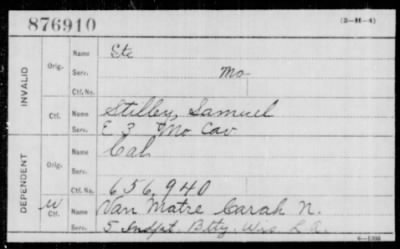 876910 (3-H-4)
INVALID Orig. Name Ste
Serv. Mo
Ctf. No.
Ctf. Name Stilley, Samuel
Serv. E 3 Mo Cav
DEPENDENT Orig. Name Cal
Serv.
Ctf. No. 656,940
W Ctf. Name Van Matre Sarah N.
Serv. 5 Indpt Btty. Wis L. A.